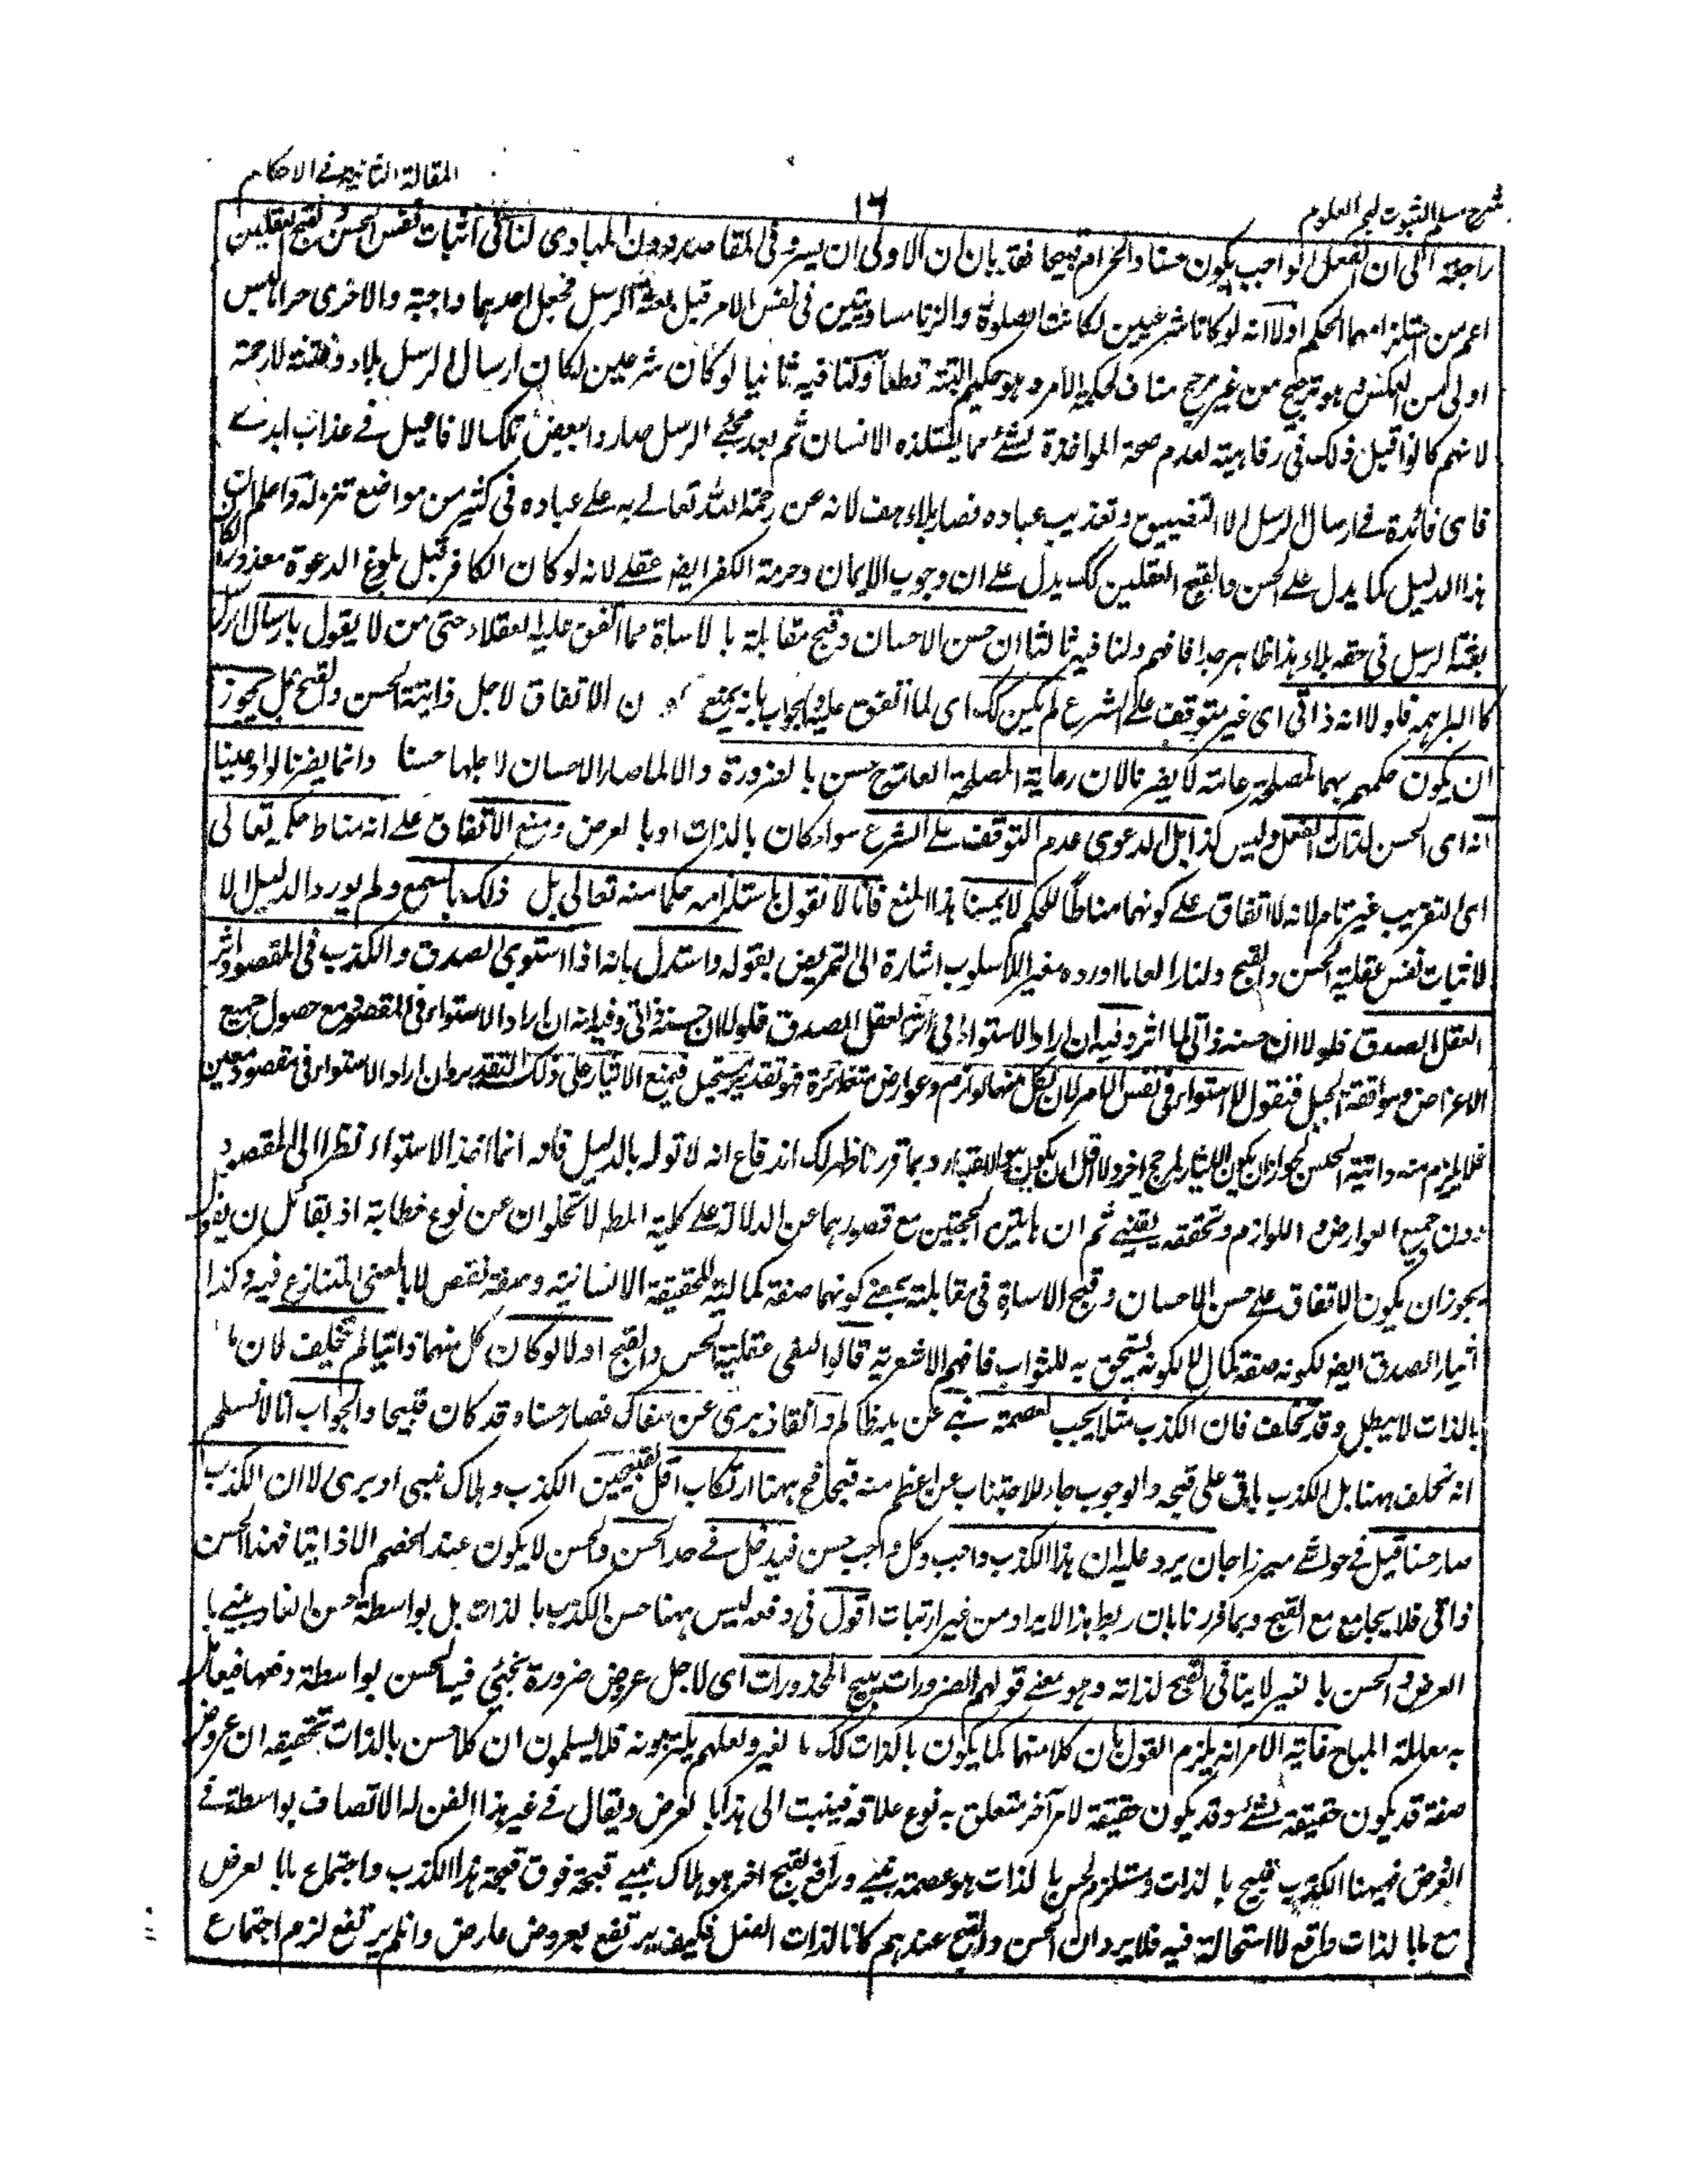 المقالة الثانية في الاحكام
١٦
شرح مسلم الثبوت لبحر العلوم
راجعة الى ان الفعل الواجب يكون حسنا والحرام قبيحا فقد بان ان الاولى ان يسرد في المقاصد دون المبادي لنا في اثبات نفس الحسن والقبح العقليين
اعم من استلزامهما الحكم اولا انه لو كانا شرعيين لكانت الصلوة والزنا متساويين في نفس الامر قبل بعثة الرسل فجعل احدهما واجبة والاخرى حراما ليس
اولى من العكس هو ترجيح من غير مرجح مناف لحكمة الامر وهو حكيم البتة قطعا ولنا فيه ثانيا لو كان شرعيين لكان ارسال الرسل بلاء وفتنة لا رحمة
لانهم كانوا قبل ذلك في رفاهية لعدم صحة المواخذة بشئ مما يستلذه الانسان ثم بعد مجئ الرسل صاروا ببعض تلك الافاعيل في عذاب ابدے
فاى فائدة في ارسال الرسل الا التضييق وتعذيب عباده فصار بلاء هف لانه من رحمة الله تعالے به علے عباده فى كثير من مواضع تنزيله واعلم ان
هذا الدليل كما يدل علے الحسن والقبح العقليين كك يدل علے ان وجوب الايمان وحرمة الكفر ايضا عقلے لانه لو كان الكافر قبل بلوغ الدعوة معذورا لكان
بعثة الرسل فى حقه بلاء هذا ظاهر جدا فافهم ولنا فيه ثالثا ان حسن الاحسان وقبح مقابلة بالاساة مما اتفق عليه العقلاء حتى من لا يقول بارسال الرسل
كالبراهمة فلولا انه ذاتى اى غير متوقف علے الشرع لم يكن كك اى لما اتفق عليه والجواب بانه يمنع ن الاتفاق لاجل ذاتية الحسن والقبح بل يجوز
ان يكون حكمهم بهما لمصلحة عامة لا يضرنا لان رعاية المصلحة العامة حسن بالضرورة والا لما صار الاحسان لاجلها حسنا وانما يضرنا لو ادعينا
انه اى الحسن لذات الفعل وليس كذا بل الدعوى عدم التوقف على الشرع سواء كان بالذات او بالعرض ومنع الاتفاق علے انه مناط حكمه تعالى
اى التقريب غير تام لانه لا اتفاق علے كونهما مناطا للحكم لا يمسنا هذا المنع فانا لا نقول باستلزامه حكما منه تعالى بل ذلك بالسمع ولم يورد الدليل الا
لاثبات نفس عقلية الحسن والقبح ولنا رابعا ما اورده مغير الاسلوب اشارة الى التمريض بقوله واستدل بانه اذا استوى الصدق والكذب فى المقصود اثر
العقل الصدق فلولا ان حسنه ذاتى لما اثر وفيه ان اراد الاستواء فى
الاغراض وموافقة الجبل فنقول لا استواء فى نفس الامر لان لكل منهما لوازم وعوارض متغائرة فهو تقدير مستحيل فيمنع الايثار على ذلك التقدير وان اراد الاستواء فى مقصود معين
فلا يلزم منه ذاتية الحسن لجواز ان يكون الايثار لمرجح اخر وبما قررنا ظهر لك اندفاع انه انما اخذ الاستواء نظرا الى المقصود
دون جميع العوارض و اللوازم وتحققه يقيني ثم ان هاتين الحجتين مع قصورهما عن الدلالة علے كلية المط لا تخلوان عن نوع خطابة اذ
يجوز ان يكون الاتفاق علے حسن الاحسان وقبح الاساة فى مقابلته بمعنے كونهما صفة كمالية للحقيقة الانسانية وصفة نقص لا بالمعنى المتنازع فيه وكذا
ايثار الصدق ايضا لكونه صفة كمال لا لكونه يستحق به للثواب فافهم الاشعرية قالوا لنفى عقلية الحسن والقبح اولا لو كان كل منهما ذاتيا لم يتخلف لان ما
بالذات لا يبطل وقد تخلف فان الكذب مثلا يجب لعصمة نبے عن يد ظالم وانقاذ برى عن سفاك فصار حسنا وقد كان قبيحا والجواب انا لا نسلم
انه تخلف ههنا بل الكذب باق على قبحه والوجوب جاء للاجتناب عن اعظم منه قبحا فح ههنا ارتكاب اقل القبيحين الكذب وهلاك نبى او برى لا ان الكذب
صار حسنا قيل فے حواشے ميرزا جان يرد عليه ان هذا الكذب واجب وكل واجب حسن فيدخل فے حد الحسن والحسن لا يكون عند الخصم الا ذاتيا فهذا الحسن
ذاتى فلا يجامع مع القبح وبما قررنا بان ربط هذا الايراد من غير ارتياب اقول فى دفعه ليس ههنا حسن الكذب بالذات بل بواسطة حسن انقاذ نبے با
العرض والحسن بالغير لا ينافى القبح لذاته وهو معنے قولهم الضرورات تبيح المحذورات اى لاجل عروض ضرورة يجئ فيه الحسن بواسطة دفعها فيعامل
به معاملة المباح غاية الامر انه يلزم القول بان كلا منهما كما يكون بالذات كك بالغير ولعلهم يلتزمونه فلا يسلمون ان كلا حسن بالذات تحقيقه ان عروض
صفة قد يكون حقيقة لشئ وقد يكون حقيقة لامر آخر متعلق به نوع علاقة فينسب الى هذا بالعرض ويقال فے غير هذا الفن له الاتصاف بواسطة فے
العرض فههنا الكذب قبيح بالذات ومستلزم لحسن بالذات هو عصمة نبے ورافع لقبح اخر هو هلاك نبے قبحه فوق قبحة هذا الكذب واجتماع ما بالعرض
مع ما بالذات واقع لا استحالة فيه فلا يرد ان الحسن والقبح عندهم كانا لذات الفعل فكيف يرتفع بعروض عارض وان لم يرتفع لزم اجتماع